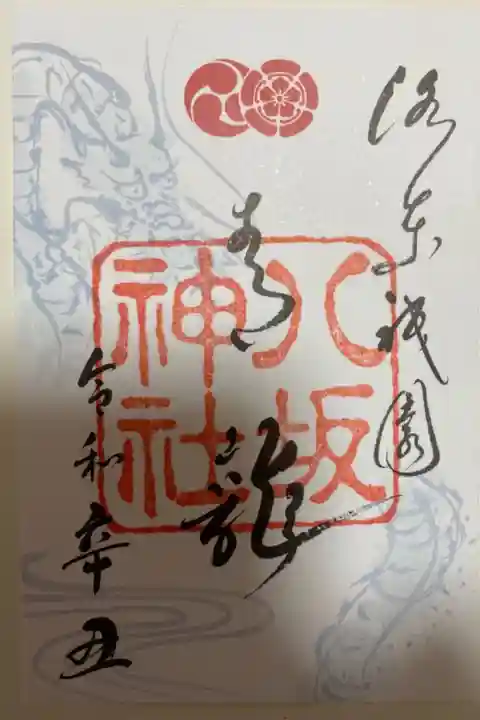 洛東祇園
青龍
八坂神社
令和辛丑